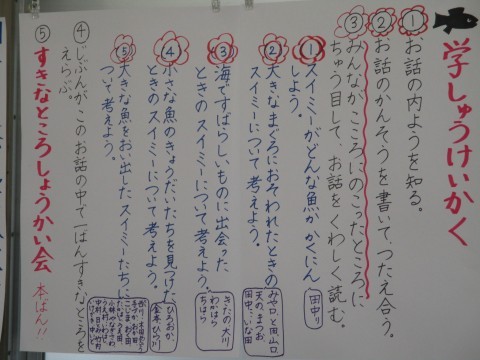 学しゅうけいかく
①お話の内ようを知る。
②お話のかんそうを書いて、つたえ合う。
③みんなが こころにのこったところに
ちゅう目して、お話をくわしく読む。
①スイミーがどんな魚か かくにん
しよう。
田中り
②大きなまぐろにおそわれたときの
スイミーについて考えよう。
③海ですばらしいものに出会った
ときのスイミーについて考えよう。
きたの 大川
わかはら
ちはら
④小さな魚のきょうだいたちを見つけた
ときのスイミーについて考えよう。
ひろおか
⑤大きな魚をおい出したスイミーたちに
ついて考えよう。
④じぶんが、このお話の中で一ばんすきなところを
えらぶ。
⑤すきなところしょうかい会 本ばん!!